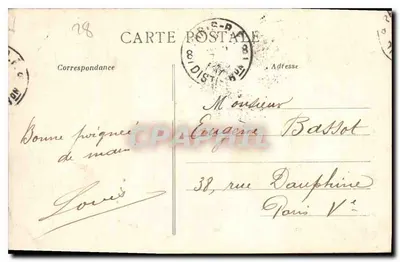 28
CARTE POSTALE
Correspondance
Adresse
Monsieur
Eugène Bassot
Bonne poignée
de main
38, rue Dauphine
Louis
Paris Ve